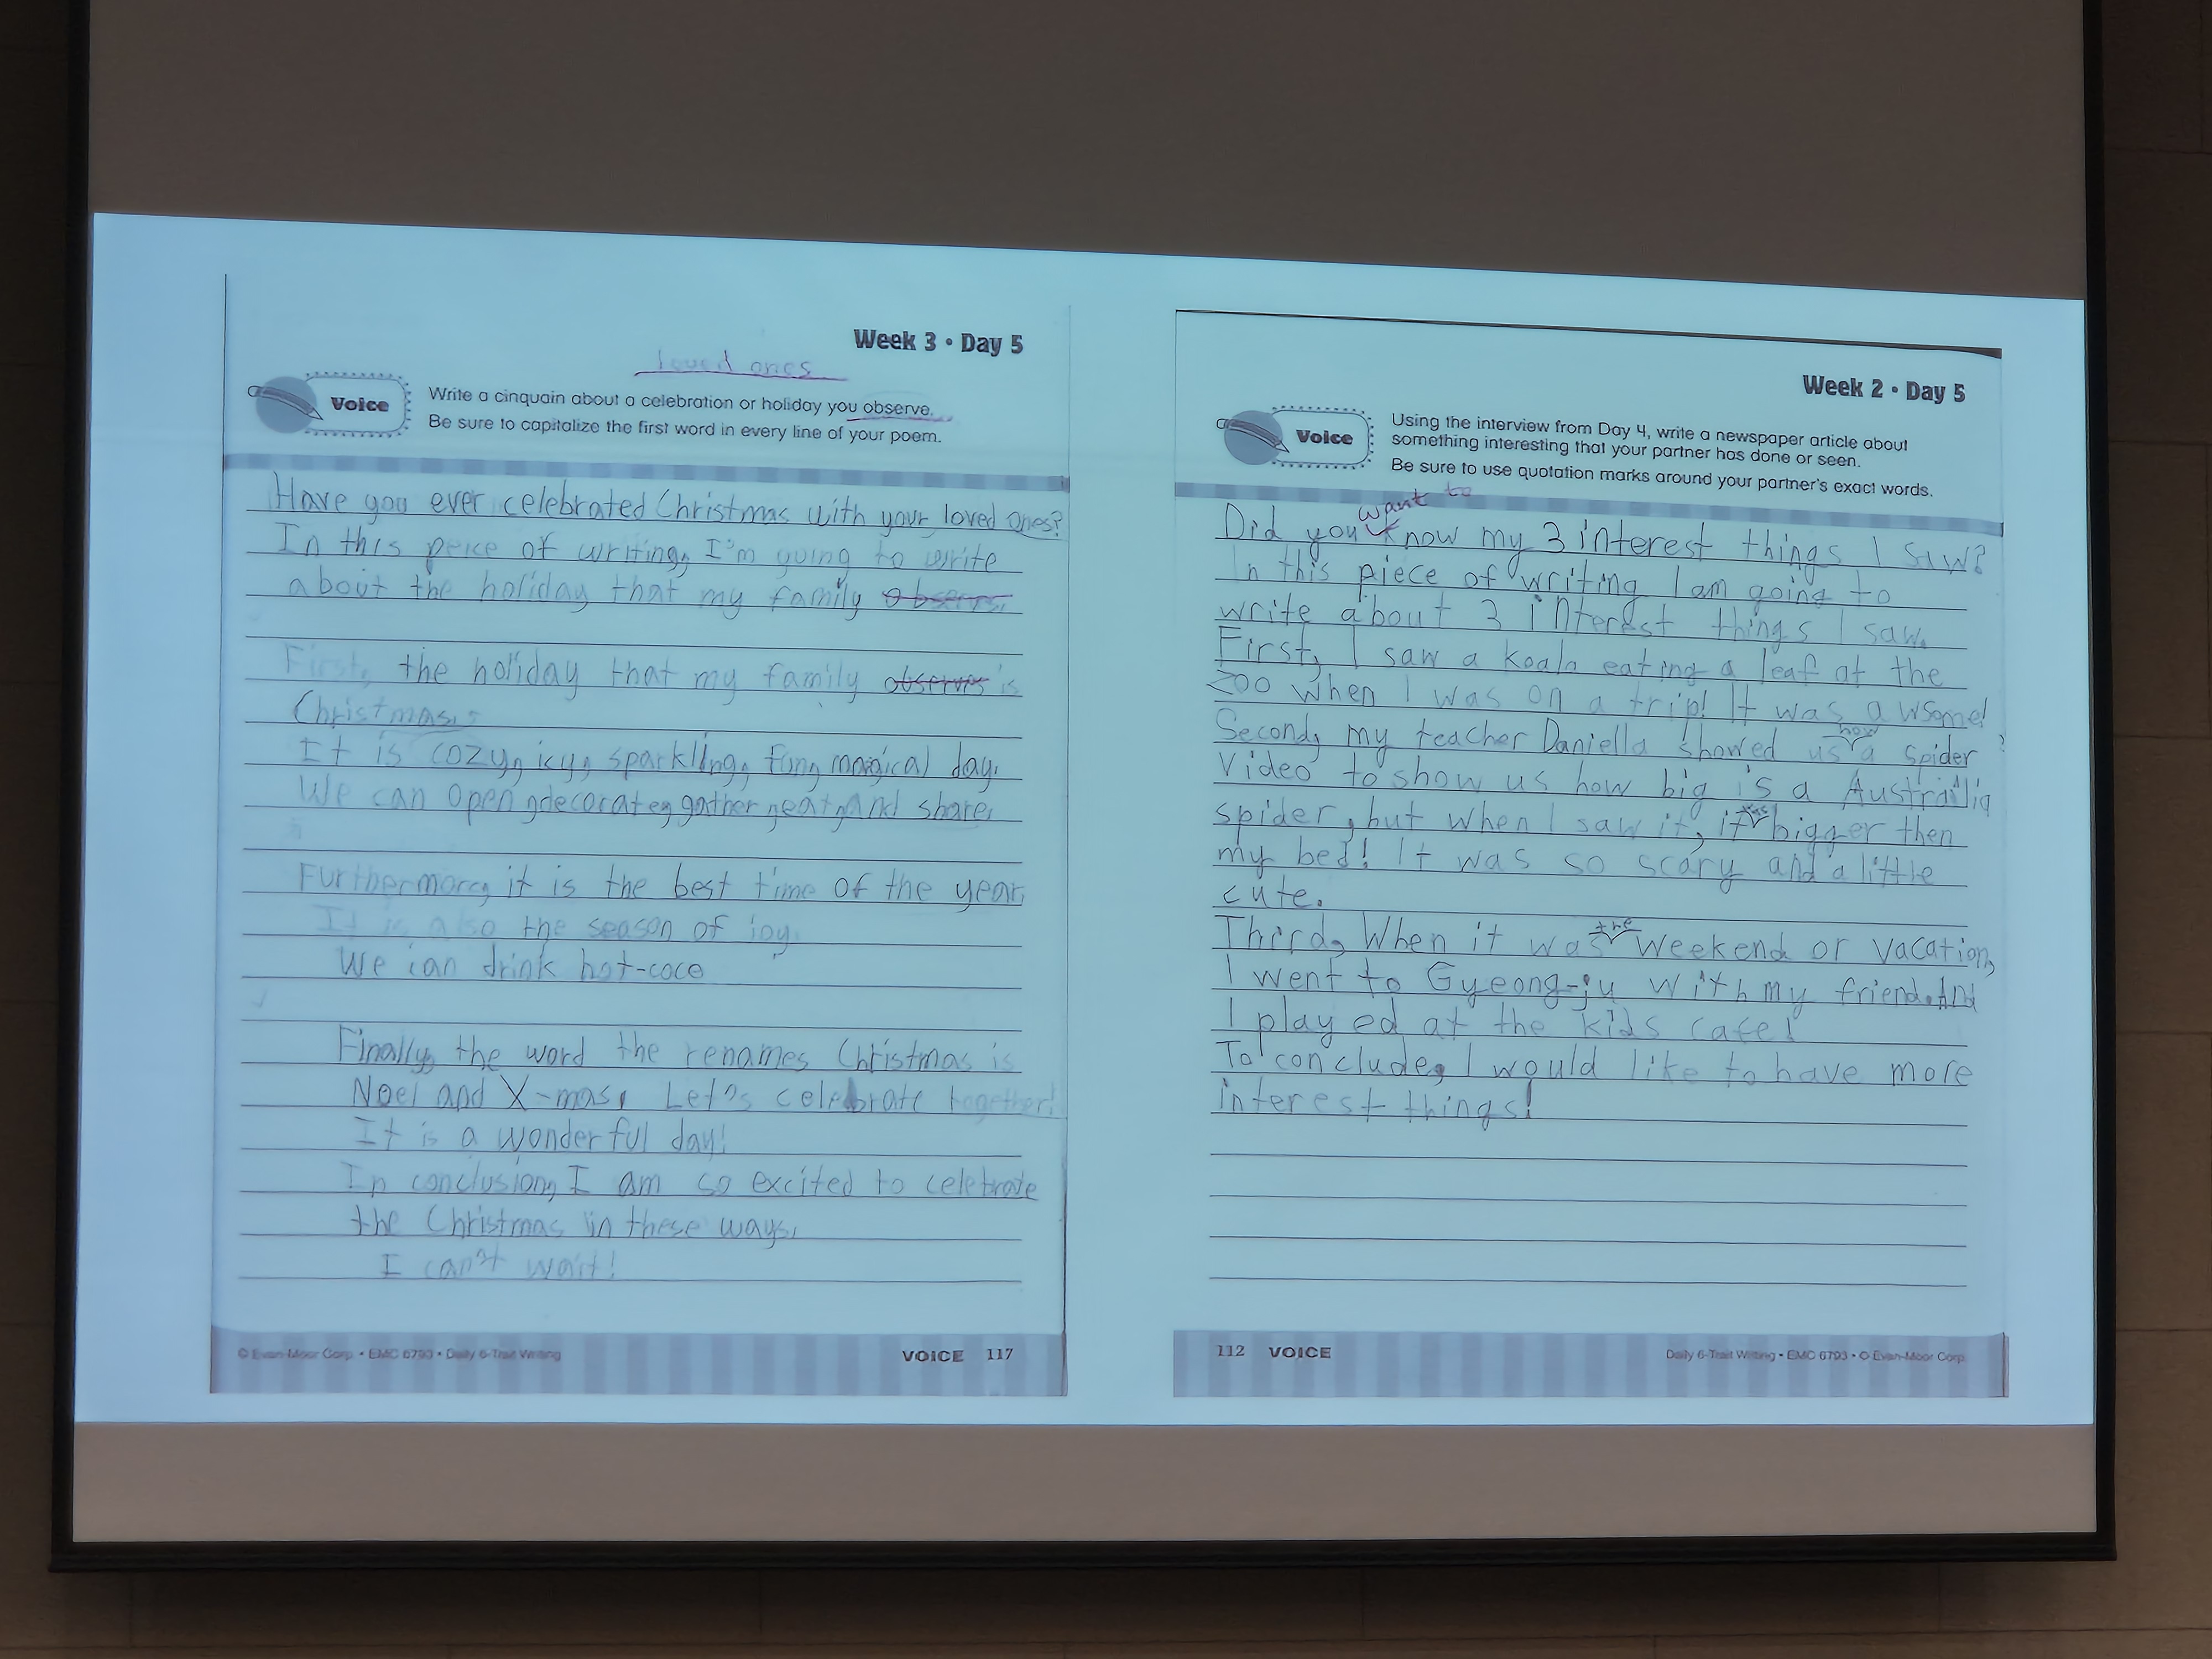 Week 3 • Day 5
loved ones
Voice
Write a cinquain about a celebration or holiday you observe.
Be sure to capitalize the first word in every line of your poem.
Have you ever celebrated Christmas with your loved ones?
In this peice of writing, I'm going to write
about the holiday that my family
First, the holiday that my family observes is
Christmas.
It is cozy, icy, sparkling, fun, magical day.
We can open, decorate, gather, eat, and share.
Furthermore, it is the best time of the year.
It is also the season of joy.
We can drink hot-coco
Finally, the word the renames Christmas is
Noel and X-mas. Let's celebrate together!
It is a wonderful day!
In conclusion, I am so excited to celebrate
the Christmas in these ways.
I can't wait!
© Evan-Moor Corp. • EMC 6793 • Daily 6-Trait Writing
VOICE 117
Week 2 • Day 5
Voice
Using the interview from Day 4, write a newspaper article about
something interesting that your partner has done or seen.
Be sure to use quotation marks around your partner's exact words.
want to
Did you know my 3 interest things I saw?
In this piece of writing I am going to
write about 3 interest things I saw.
First, I saw a koala eating a leaf at the
zoo when I was on a trip! It was awsome!
how
Second, my teacher Daniella showed us a spider
Video to show us how big is a Austrailia
was
spider, but when I saw it, it bigger then
my bed! It was so scary and a little
cute.
the
Third, When it was weekend or vacation,
I went to Gyeong-ju with my friend. And
I played at the kids cafe!
To conclude, I would like to have more
interest things!
112 VOICE
Daily 6-Trait Writing • EMC 6793 • © Evan-Moor Corp.